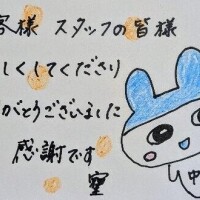 客様 スタッフの皆様
しくしてくださり
がとうございました
感謝です